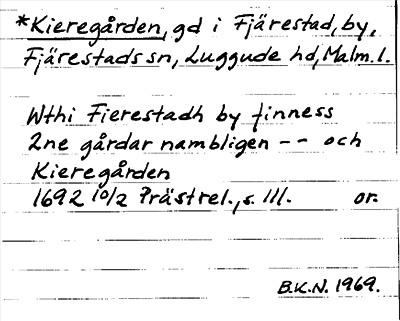 *Kieregården, gd i Fjärestad, by,
Fjärestads sn, Luggude hd, Malm. l.
Wthi Fierestadh by finness
2ne gårdar nambligen -- och
Kieregården
1692 10/2 Prästrel., s. 111. or.
B.K.N. 1969.